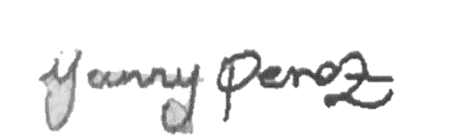 yanry peroz